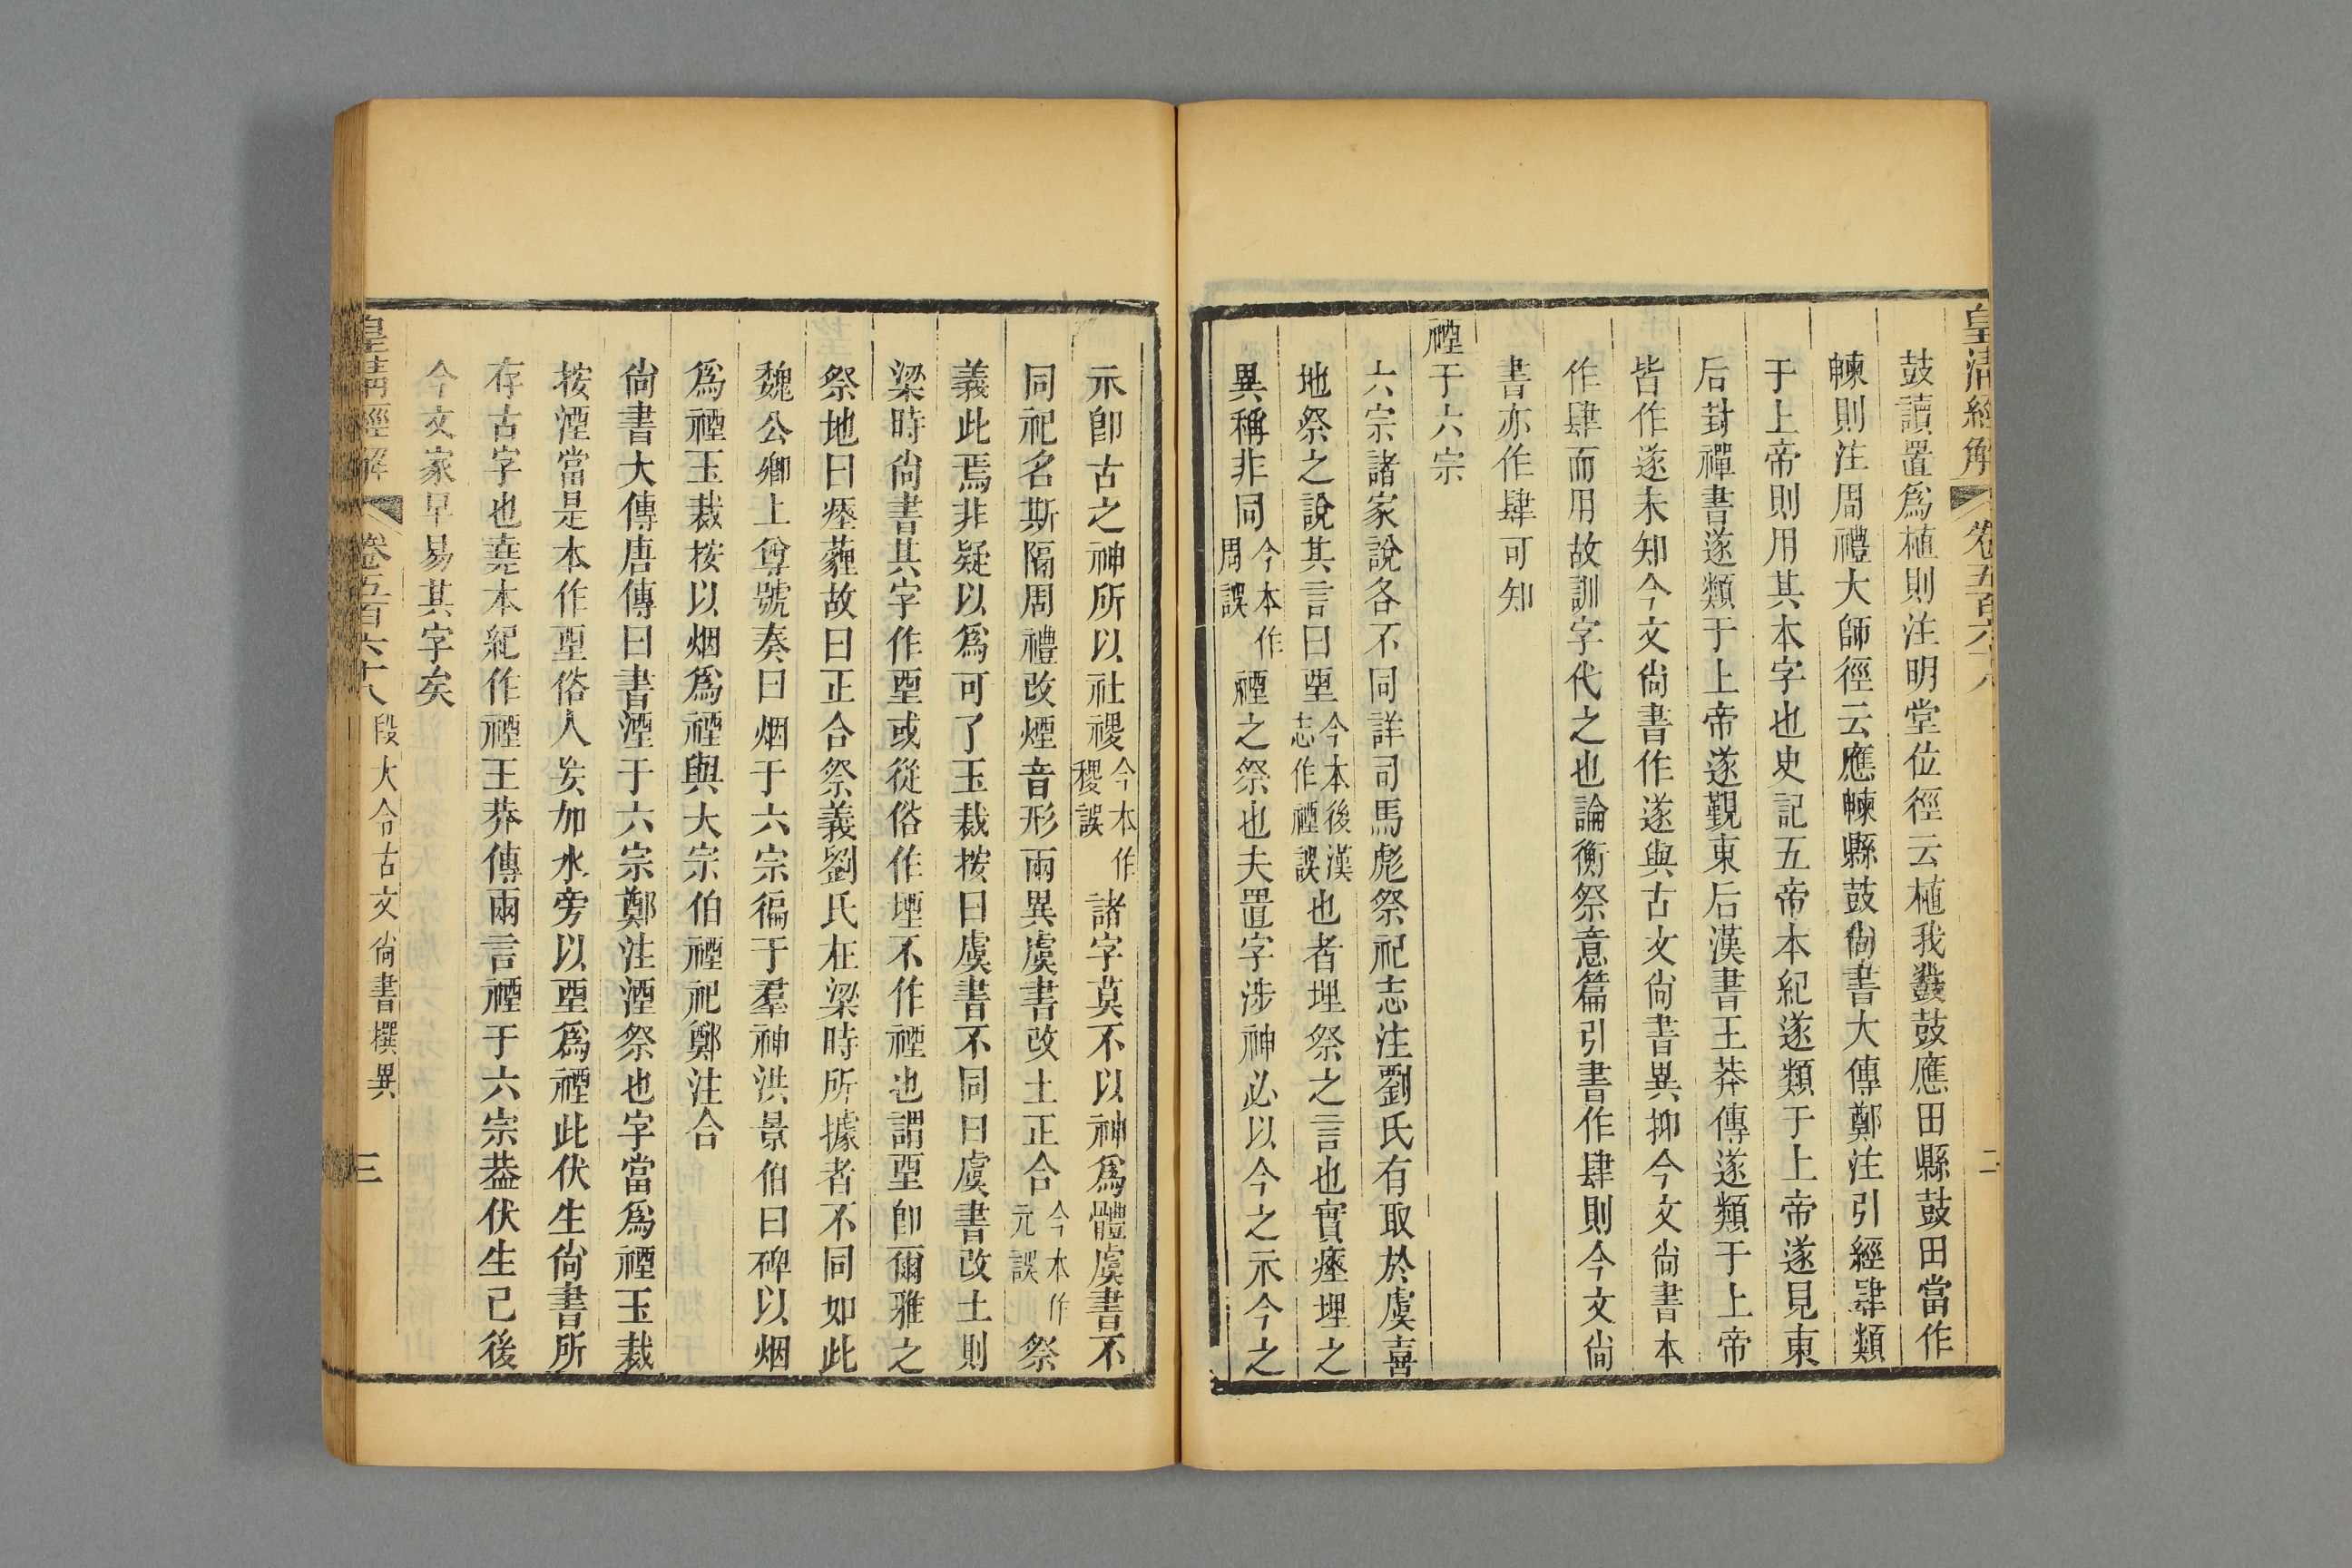 皇清經解 卷五百六十八 二
鼓讀置爲植則注明堂位徑云植我鼗鼓應田縣鼓田當作
𣌾則注周禮大師徑云應𣌾縣鼓尙書大傳鄭注引經肆類
于上帝則用其本字也史記五帝本紀遂類于上帝遂見東
后封禪書遂類于上帝遂覲東后漢書王莽傳遂類于上帝
皆作遂未知今文尙書作遂與古文尙書異抑今文尙書本
作肆而用故訓字代之也論衡祭意篇引書作肆則今文尙
書亦作肆可知
禋于六宗
六宗諸家說各不同詳司馬彪祭祀志注劉氏有取於虞喜
地祭之說其言曰垔今本後漢志作禋誤也者埋祭之言也實瘞埋之
異稱非同今本作周誤禋之祭也夫置字涉神必以今之示今之
示卽古之神所以社禝今本作稷誤諸字莫不以神爲體虞書不
同祀名斯隔周禮改煙音形兩異虞書改土正合今本作元誤祭
義此焉非疑以爲可了玉裁按曰虞書不同曰虞書改土則
梁時尙書其字作垔或從俗作堙不作禋也謂垔卽爾雅之
祭地曰瘞薶故曰正合祭義劉氏在梁時所據者不同如此
魏公卿上尊號奏曰烟于六宗徧于羣神洪景伯曰碑以烟
爲禋玉裁按以烟爲禋與大宗伯禋祀鄭注合
尙書大傳唐傳曰書湮于六宗鄭注湮祭也字當爲禋玉裁
按湮當是本作垔俗人妄加水旁以垔爲禋此伏生尙書所
存古字也堯本紀作禋王莽傳兩言禋于六宗葢伏生已後
今文家早易其字矣
皇淸經解 卷五百六十八 段大令古文尙書撰異 三